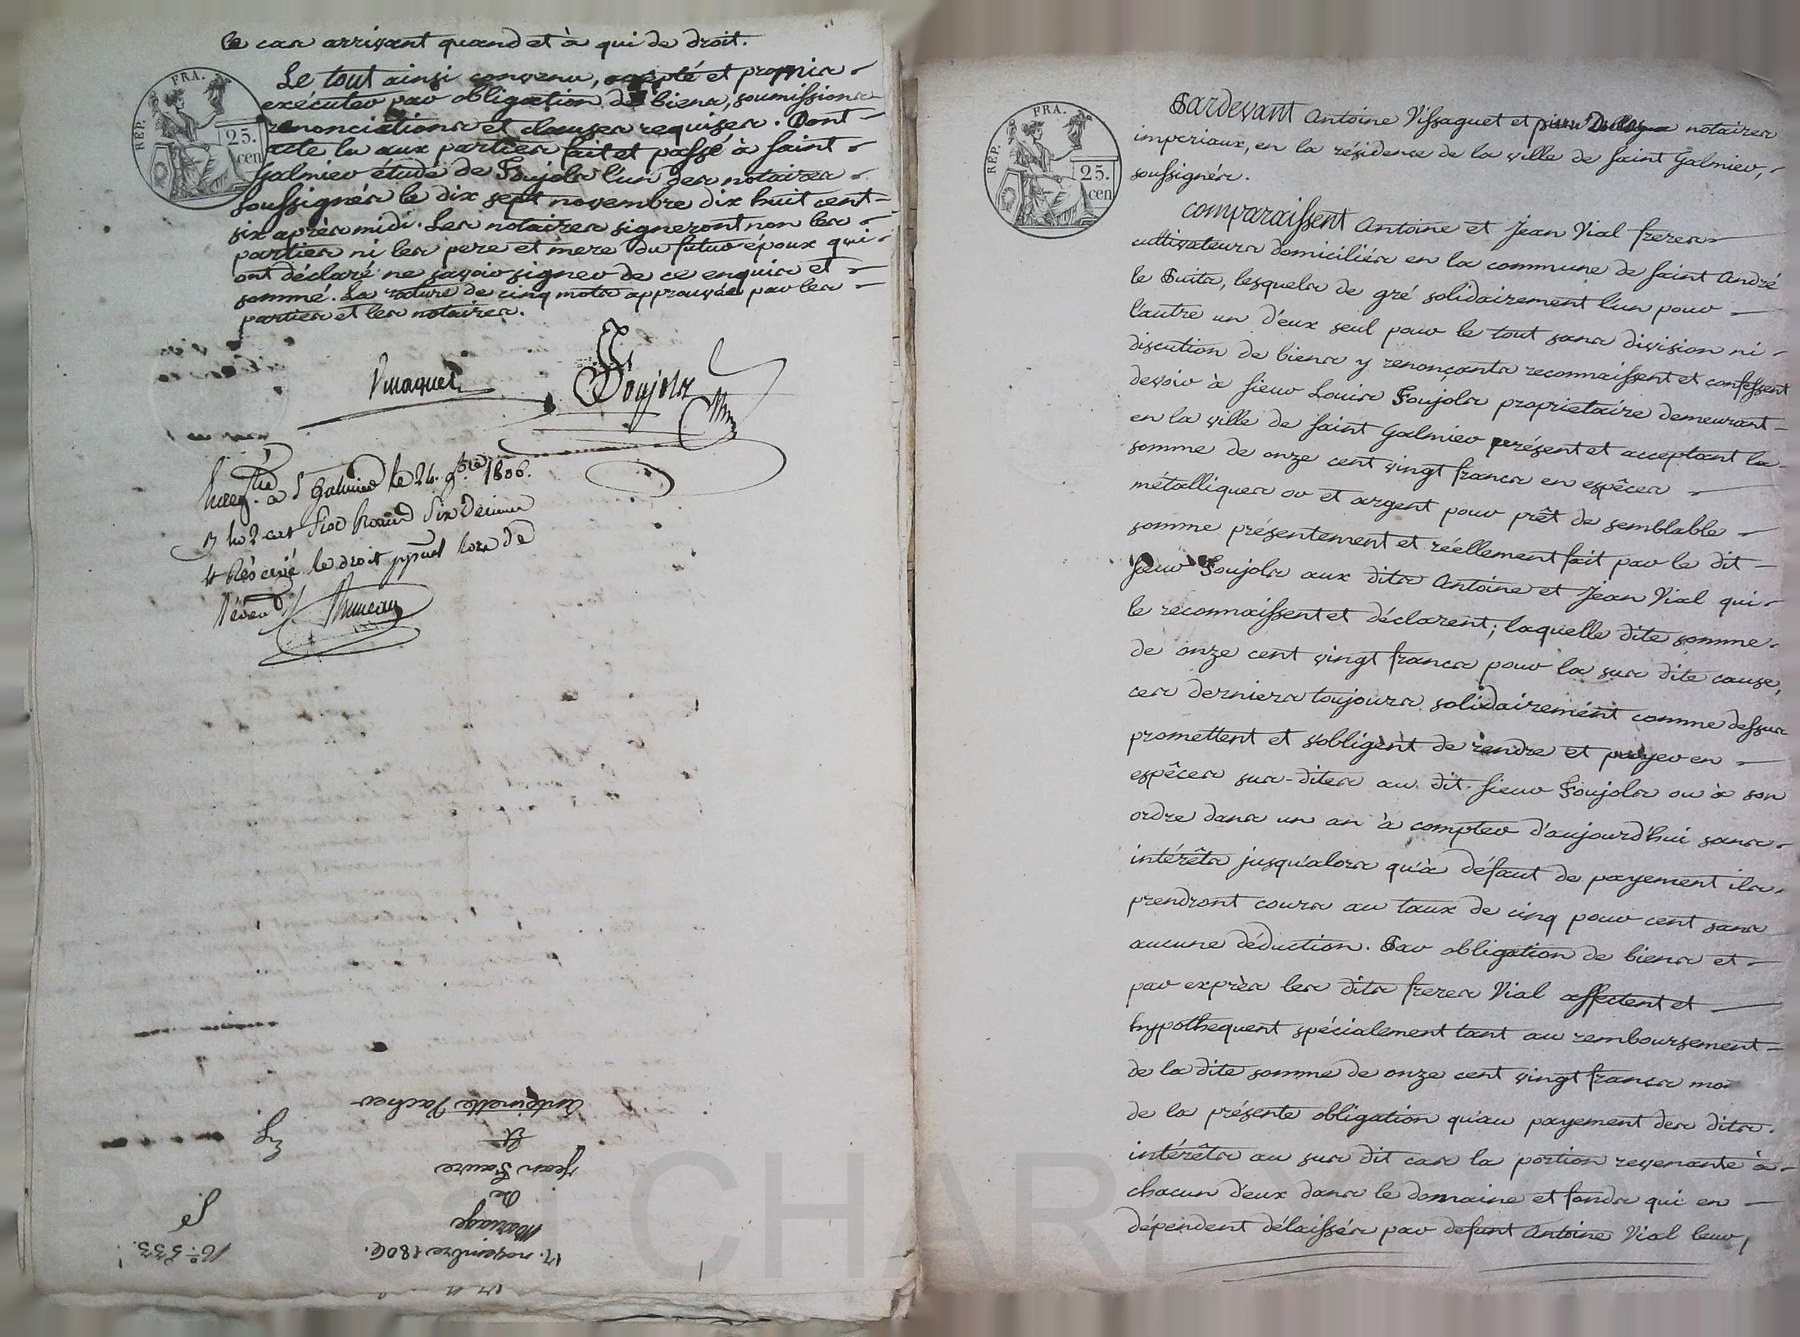 le cas arrivant quand et à qui de droit.
Le tout ainsi convenu, accepté et promis
exécuter par obligation de biens, soumissions
renonciations et clauses requises. Dont
acte lu aux parties fait et passé à saint
Galmier étude de Poujols l'un des notaires
soussignés le dix sept novembre dix huit cent
six après midi. Les notaires signeront non les
parties ni les pere et mere du futur époux qui
ont déclaré ne savoir signer de ce enquis et
sommé. La rature de cinq mots approuvée par les
parties et les notaires.
Vissaguet Poujols
Enregtré à St Galmier le 24. 9bre 1806.
six décimes
Réservé le droit lors du
décès
REP. FRA.
25. cen
17. novembre 1806.
Mariage
de
Jean Faure
et
Antoinette Pacher
No. 533.
REP. FRA.
25. cen
Pardevant Antoine Vissaguet et notaires
imperiaux, en la résidence de la ville de saint Galmier,
soussignés.
comparaissent Antoine et Jean Vial freres
cultivateurs domiciliés en la commune de saint André
le Puits, lesquels de gré solidairement l'un pour
l'autre un d'eux seul pour le tout sans division ni
discution de biens y renonçants reconnaissent et confessent
devoir à sieur Louis Poujols proprietaire demeurant
en la ville de saint Galmier présent et acceptant la
somme de onze cent vingt francs en espêces
métalliques or et argent pour prêt de semblable
somme présentement et réellement fait par le dit
sieur Poujols aux dits Antoine et Jean Vial qui
le reconnaissent et déclarent; laquelle dite somme
de onze cent vingt francs pour la sus dite cause,
ces derniers toujours solidairement comme dessus
promettent et s'obligent de rendre et payer en
espêces sus-dites au dit sieur Poujols ou à son
ordre dans un an à compter d'aujourd'hui sans
intérêts jusqu'alors qu'à défaut de payement ils
prendront cours au taux de cinq pour cent sans
aucune déduction. Par obligation de biens et
par exprès les dits freres Vial affectent et
hypothequent spécialement tant au remboursement
de la dite somme de onze cent vingt francs
de la présente obligation qu'au payement des dits
intérêts au sus dit cas la portion revenante à
chacun d'eux dans le domaine et fonds qui en
dépendent délaissés par defunt Antoine Vial leur